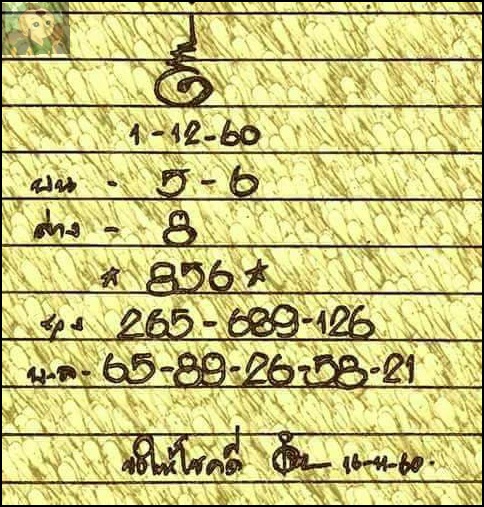 1-12-60
บน - 5 - 6
ล่าง - 8
* 856 *
ชุด 265 - 689 - 126
บ.ล - 65 - 89 - 26 - 58 - 21
ขอให้โชคดี 16-11-60.